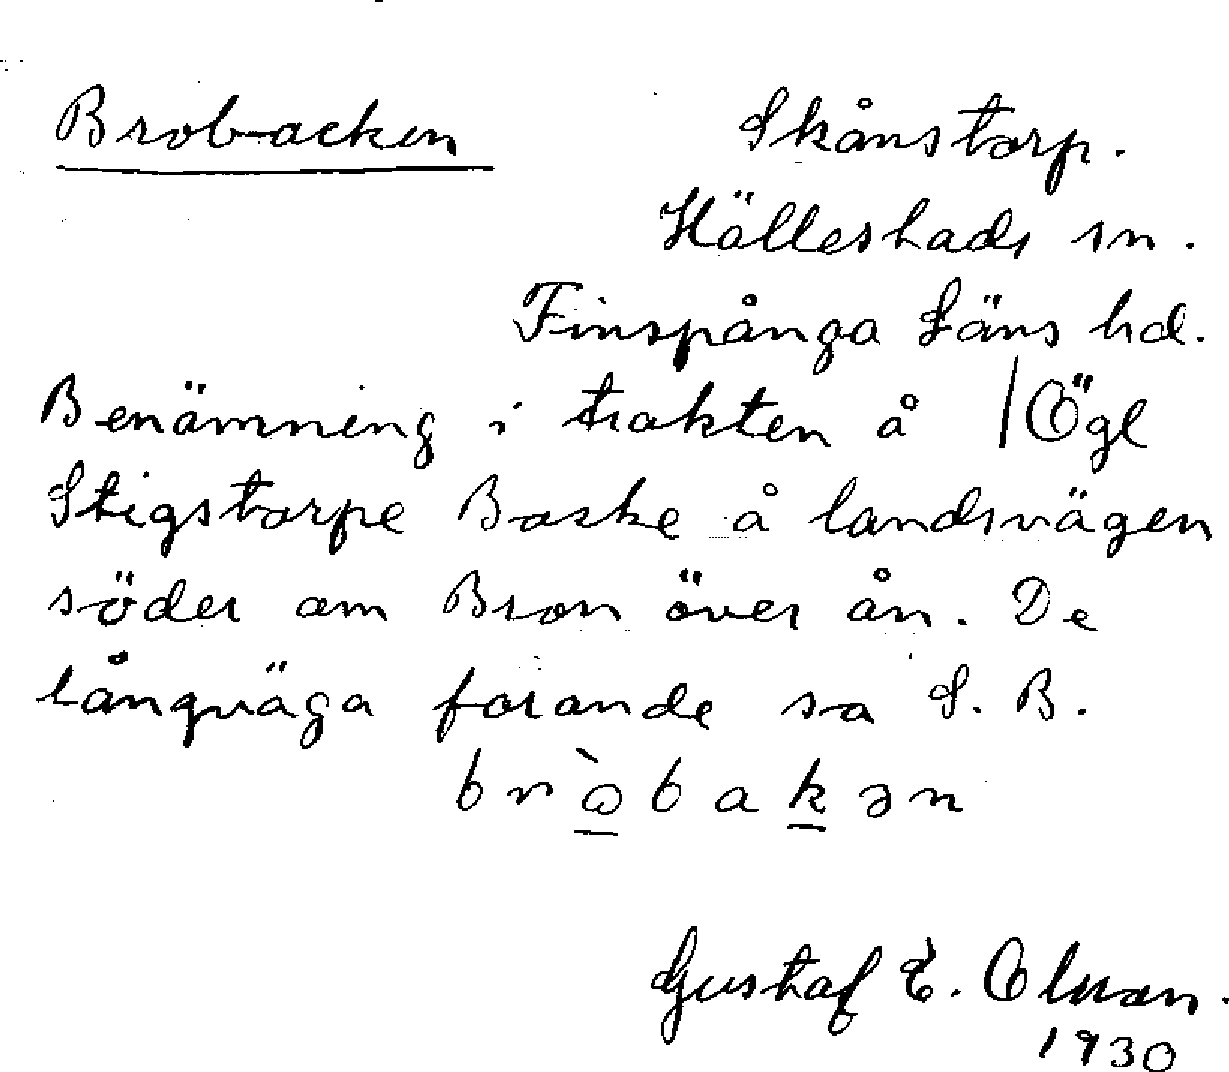 Brobacken Skånstorp.
Hällestads sn.
Finspånga Läns hd.
Benämning i trakten å /Ögl
Stigstorps Backe å landsvägen
söder om Bron över ån. De
långväga farande sa S. B.
bròbakən
Gustaf E.
1930